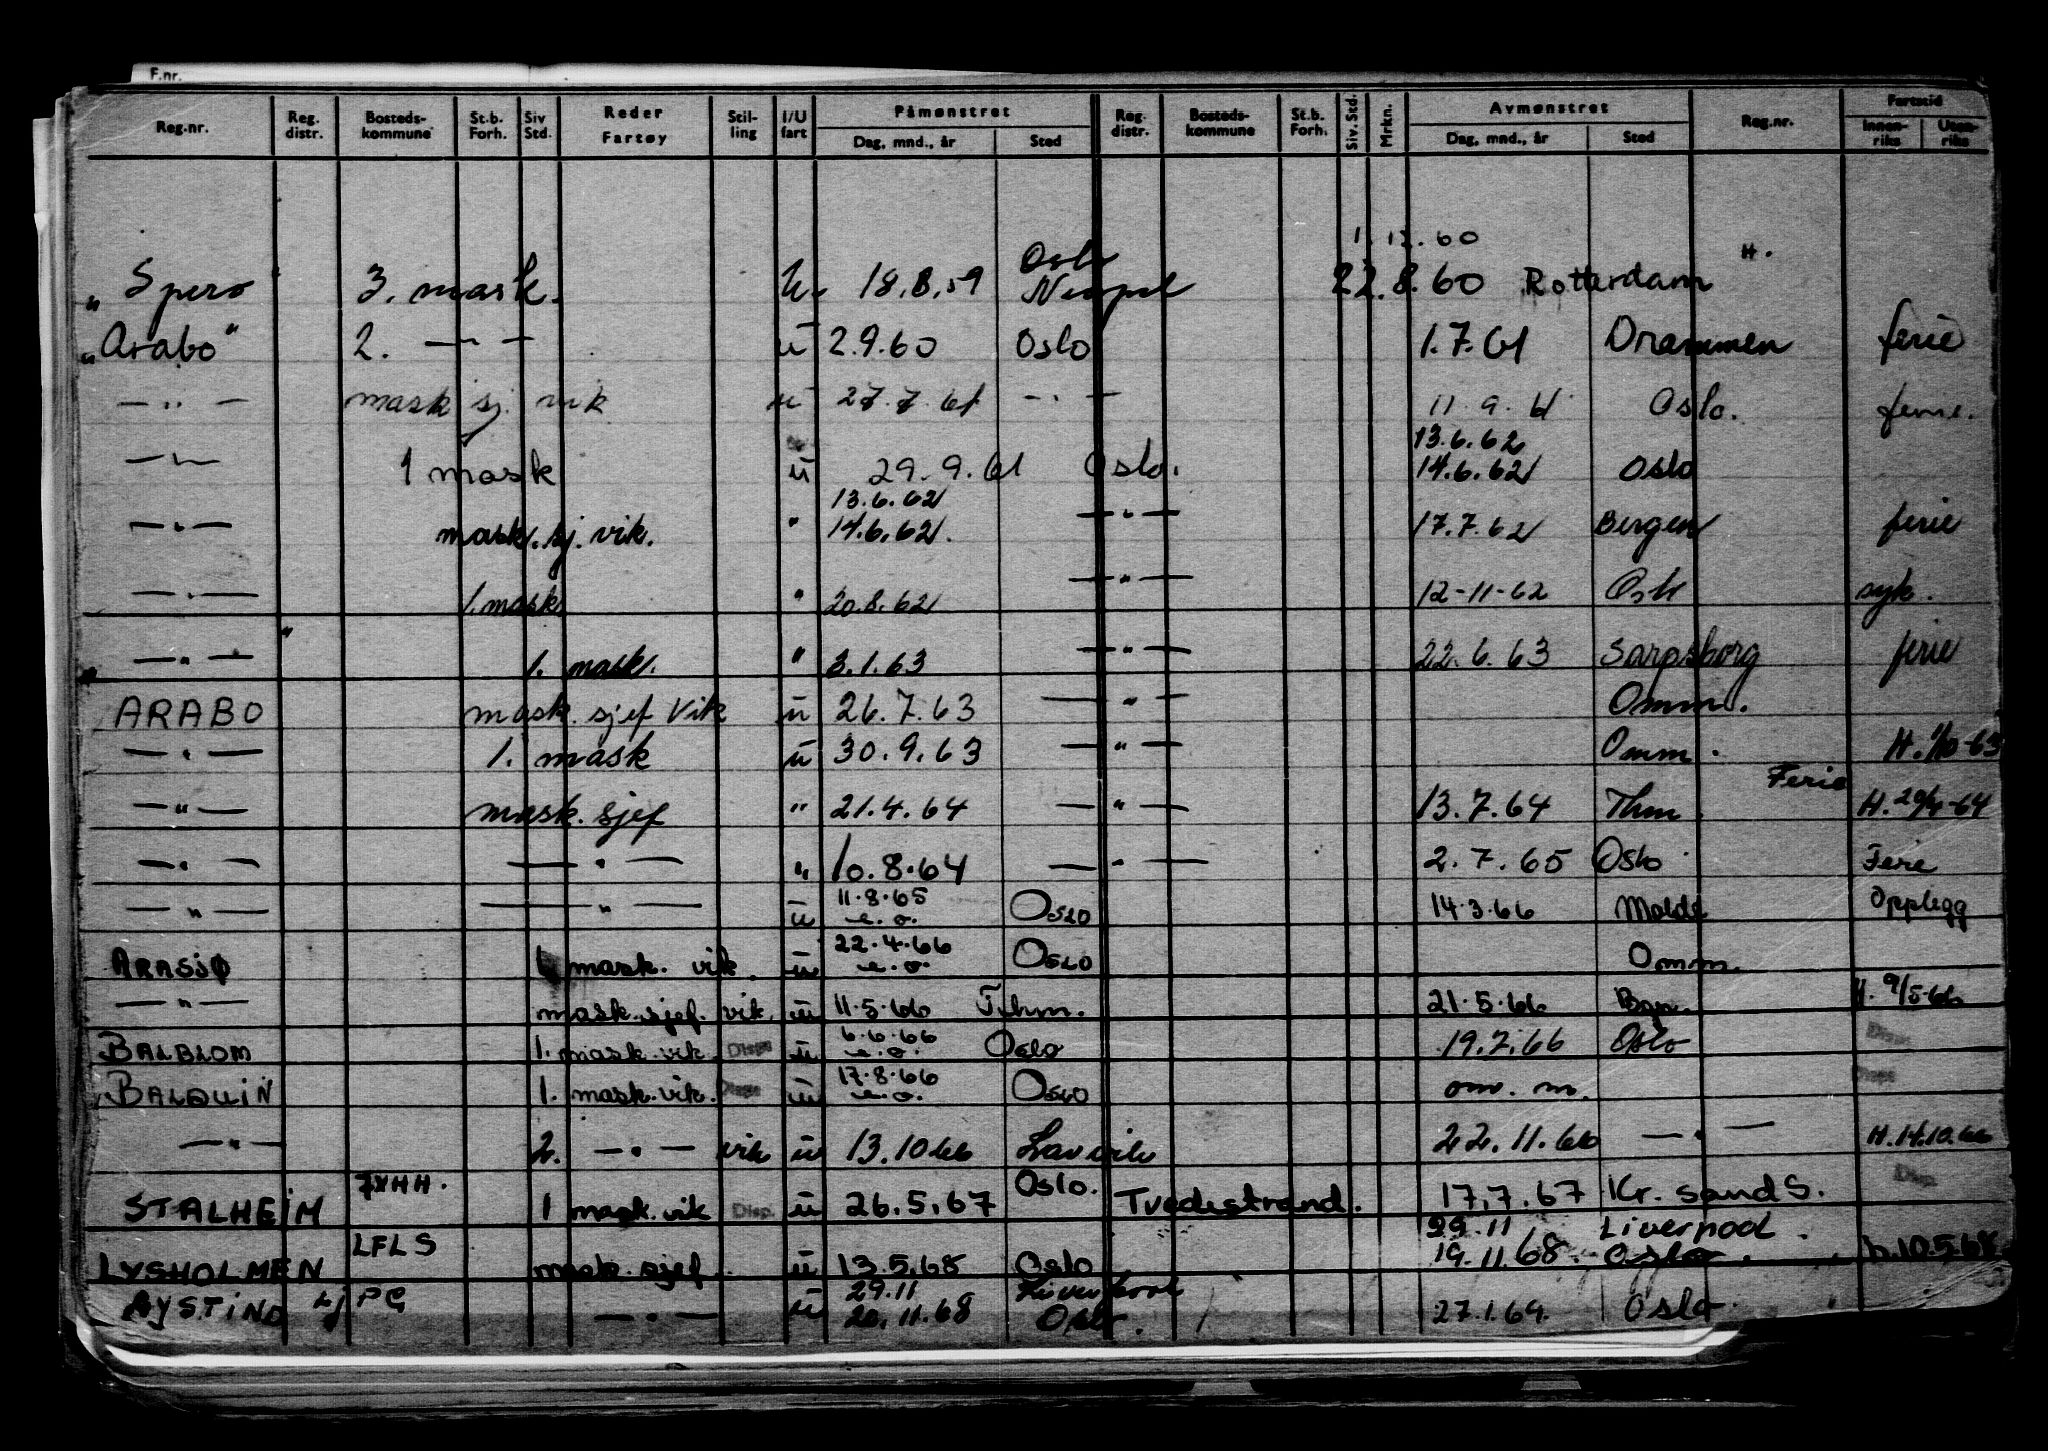 F.nr.
Reg.nr. Reg. distr. Bosteds-kommune St.b. Forh. Siv Std. Reder Fartøy Stil-ling I/U fart Påmønstret Dag, mnd., år Sted Reg. distr. Bosteds-kommune St.b. Forh. Siv. Std. Mrkn. Avmønstret Dag, mnd., år Sted Reg.nr. Fartstid Innen-riks Uten-riks
1.12.60 H.
Oslo
„Spero" 3. mask. U. 18.8.59 Neapel 22.8.60 Rotterdam
„Arabo" 2. — — u 2.9.60 Oslo 1.7.61 Drammen ferie
— " — mask sj. vik u 27.7.61 — " — 11.9.61 Oslo. ferie.
13.6.62
— " — 1 mask u 29.9.61 Oslo. 14.6.62 Oslo
13.6.62
— " — mask. sj. vik. " 14.6.62. — " — 17.7.62 Bergen ferie
— " — 1. mask " 20.8.62 — " — 12-11-62 Oslo syk.
„ — " — " 1. mask. " 3.1.63 — " — 22.6.63 Sarpsborg ferie
ARABO mask. sjef Vik u 26.7.63 — " — Omm.
— " — 1. mask u 30.9.63 — " — Omm. H. 1/10-63
Ferie
— " — mask. sjef " 21.4.64 — " — 13.7.64 Thm H. 29/4-64
— " — — " — " 10.8.64 — " — 2.7.65 Oslo Ferie
11.8.65
— " — — " — u e.o. Oslo 14.3.66 Molde Opplegg
22.4.66
ARASJØ mask. vik. u e.o. Oslo Omm.
— " — mask. sjef. vik. u 11.5.66 Trhm. 21.5.66 H. 9/5-66
6.6.66
BALBLOM 1. mask. vik Disp u e.o. Oslo 19.7.66 Oslo Disp.
17.8.66
BALQUIN 1. mask. vik. Disp u e.o. Oslo om. m. Disp
— " — 2. — " — vik u 13.10.66 Larvik 22.11.66 — " — H. 14.10.66
7XHH. Oslo. Disp.
STALHEIM 1 mask. vik Disp. u 26.5.67 Tvedestrand. 17.7.67 Kr. sand S.
LFLS 29.11 Liverpool.
LYSHOLMEN mask. sjef. u 13.5.68 Oslo 19.11.68. Oslo. h. 10.5.68
LJPG 29.11 Liverpool
RYSTIND — " — u 20.11.68 Oslo. 27.1.69. Oslo.